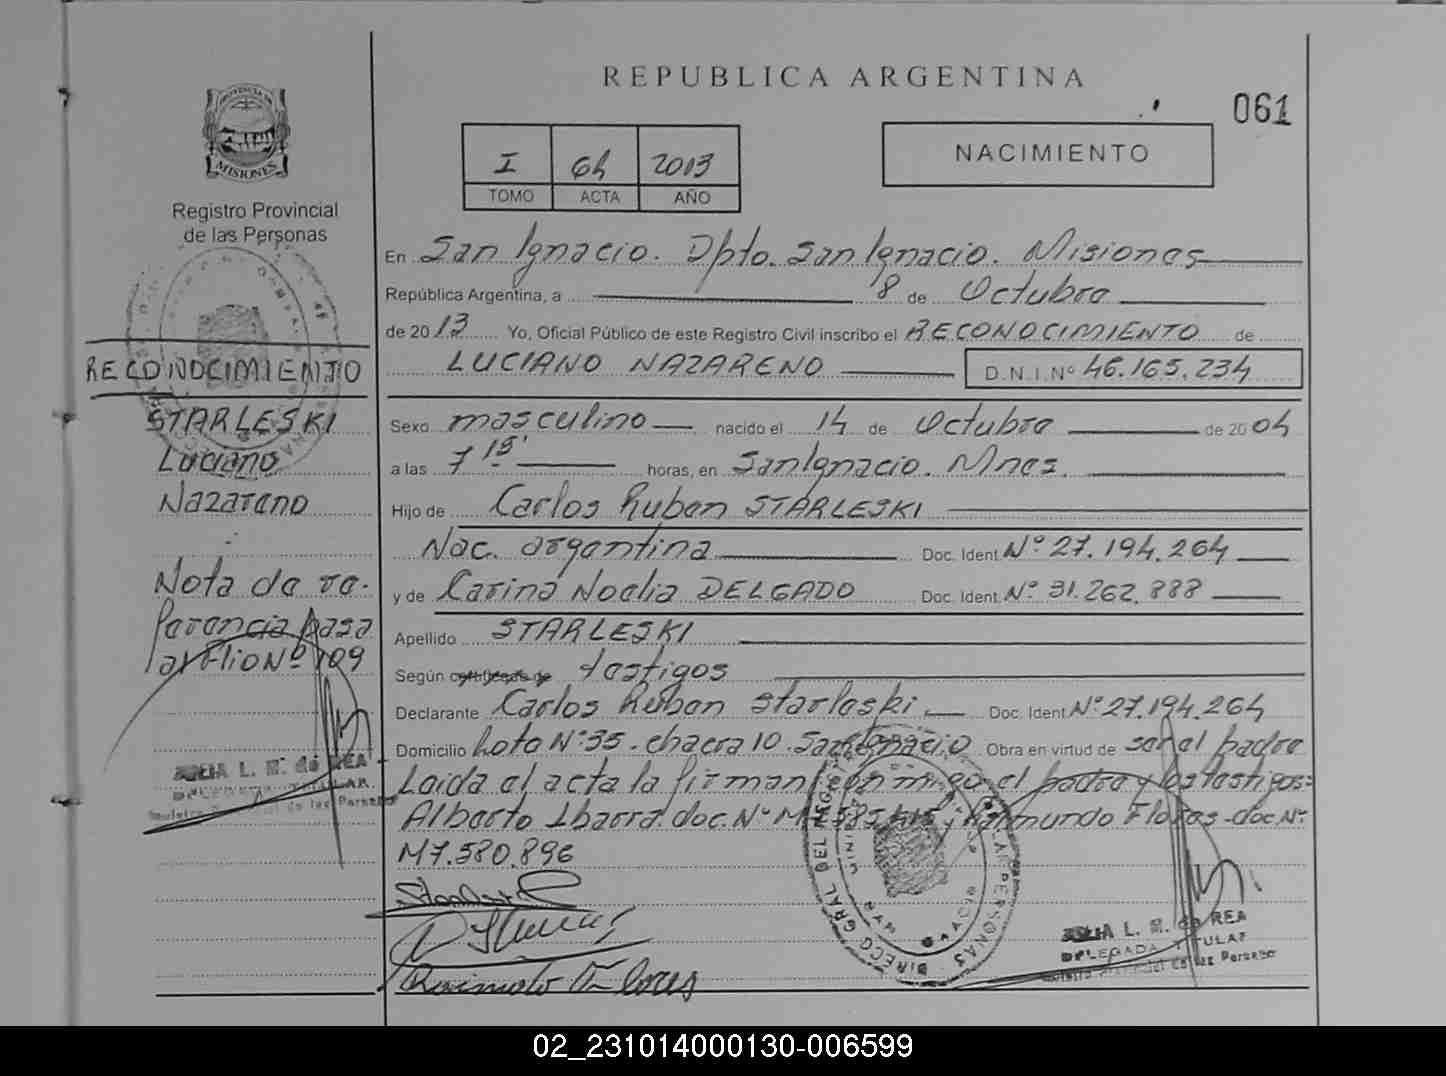 REPUBLICA ARGENTINA
061
PROVINCIA DE
MISIONES
Registro Provincial
de las Personas
I 64 2013
TOMO ACTA AÑO
NACIMIENTO
En San Ignacio. Dpto. San Ignacio. Misiones
República Argentina, a 8 de Octubre
de 2013 Yo, Oficial Público de este Registro Civil inscribo el RECONOCIMIENTO de
LUCIANO NAZARENO D.N.I.Nº 46.165.234
Sexo masculino nacido el 14 de Octubre de 2004
a las 7 15' horas, en San Ignacio. Mnes.
Hijo de Carlos Ruben STARLESKI
Nac. argentina Doc. Ident. Nº 27.194.264
y de Carina Noelia DELGADO Doc. Ident. Nº 31.262.888
Apellido STARLESKI
Según certificado de testigos
Declarante Carlos Ruben Starleski Doc. Ident Nº 27.194.264
Domicilio Lote Nº 35 - chacra 10 - San Ignacio Obra en virtud de ser el padre
Leída el acta la firman conmigo el padre y los testigos:
Alberto Ibarra. doc. Nº y Raimundo Flores - doc. Nº
M7.580.896
RECONOCIMIENTO
STARLESKI
Luciano
Nazareno
Nota de re-
ferencia pasa
al folio Nº 109
JULIA L. M. de REA
DELEGADA TITULAR
JULIA L. M. de REA
DELEGADA TITULAR
02_231014000130-006599